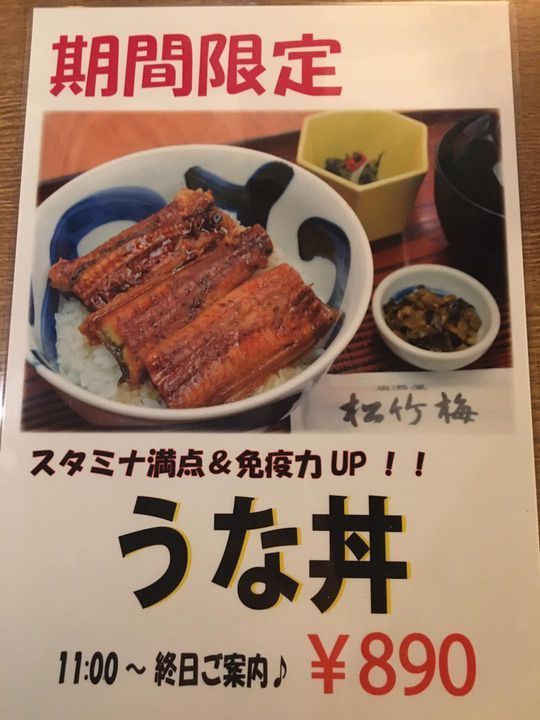 期間限定
居酒屋
松竹梅
スタミナ満点&免疫力UP!!
うな丼
11:00~終日ご案内♪ ¥890